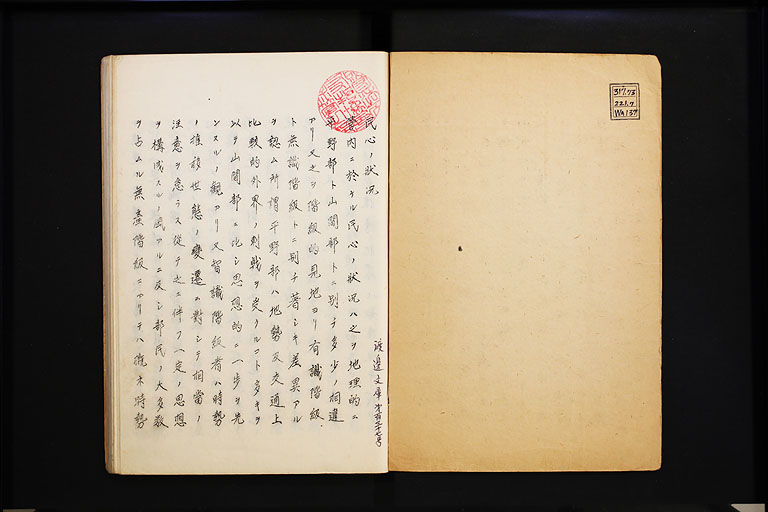 317.73
221.7
Wa137
民心ノ狀況
管內ニ於ケル民心ノ狀況ハ之ヲ地理的ニ
平野部ト山間部トニ別チ多少ノ相違
アリ又之ヲ階級的見地ヨリ有識階級
ト無識階級トニ別チ著シキ差異アル
ヲ認ム所謂平野部ハ地勢及交通上
比較的外界ノ刺戟ヲ受クルコト多キヲ
以テ山間部ニ比シ思想的ニ一步ヲ先
ンスルノ觀アリ又智識階級者ハ時勢
ノ推移世態ノ變遷ニ對シテ相當ノ
注意ヲ怠ラス從テ之ニ伴フ一定ノ思想
ヲ構成スルノ風アルニ反シ部民ノ大多數
ヲ占ムル無産階級ニアリテハ概ネ時勢
渡邊文庫第百三十七号